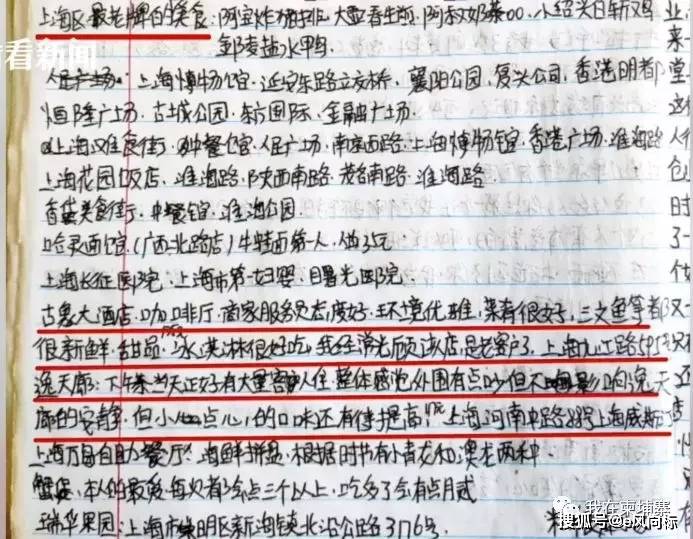 看看新闻
上海区最老牌的美食:阿宝炸猪排.大壶春生煎.阿 奶茶00.小绍兴白斩鸡
邹 盐水鸭
人民广场.上海博物馆.延安东路立交桥.襄阳公园.复兴公司.香港明都
恒隆广场.古城公园.东方国际.金融广场.
上海 食街. 餐馆.人民广场.南京西路.上海博物馆.香港广场.淮海路
上海花园饭店.淮海路.陕西南路.茂名南路.淮海路.
美食街.中餐馆.淮海公园.
哈灵面馆.(广西北路店)牛 面第一人.
上海长征医院.上海市第一妇婴.曙光医院.
古象大酒店.咖啡厅.商家服务员态度好.环境优雅.菜肴很好.三文鱼等都
很新鲜.甜品.冰淇淋很好吃.我经常光顾该店.是老客户了.上海九江路595
逸天廊:下午茶当天正好有大量客人入住.整体感觉外围有点吵但不影响逸天
廊的安静.但小点心.的口味还有待提高.上海河南中路 号上海威斯
上海万 自助餐厅:海鲜拼盘.根据时节有小青龙和澳龙两种
蟹 .本人的最爱每次都会点三个以上.吃多了会有点月
瑞华果园:上海市崇明区新海镇北沿公路3176号.
业
来一
堂
人
创
时
了一
我在柬埔寨
搜狐号@ 风向标